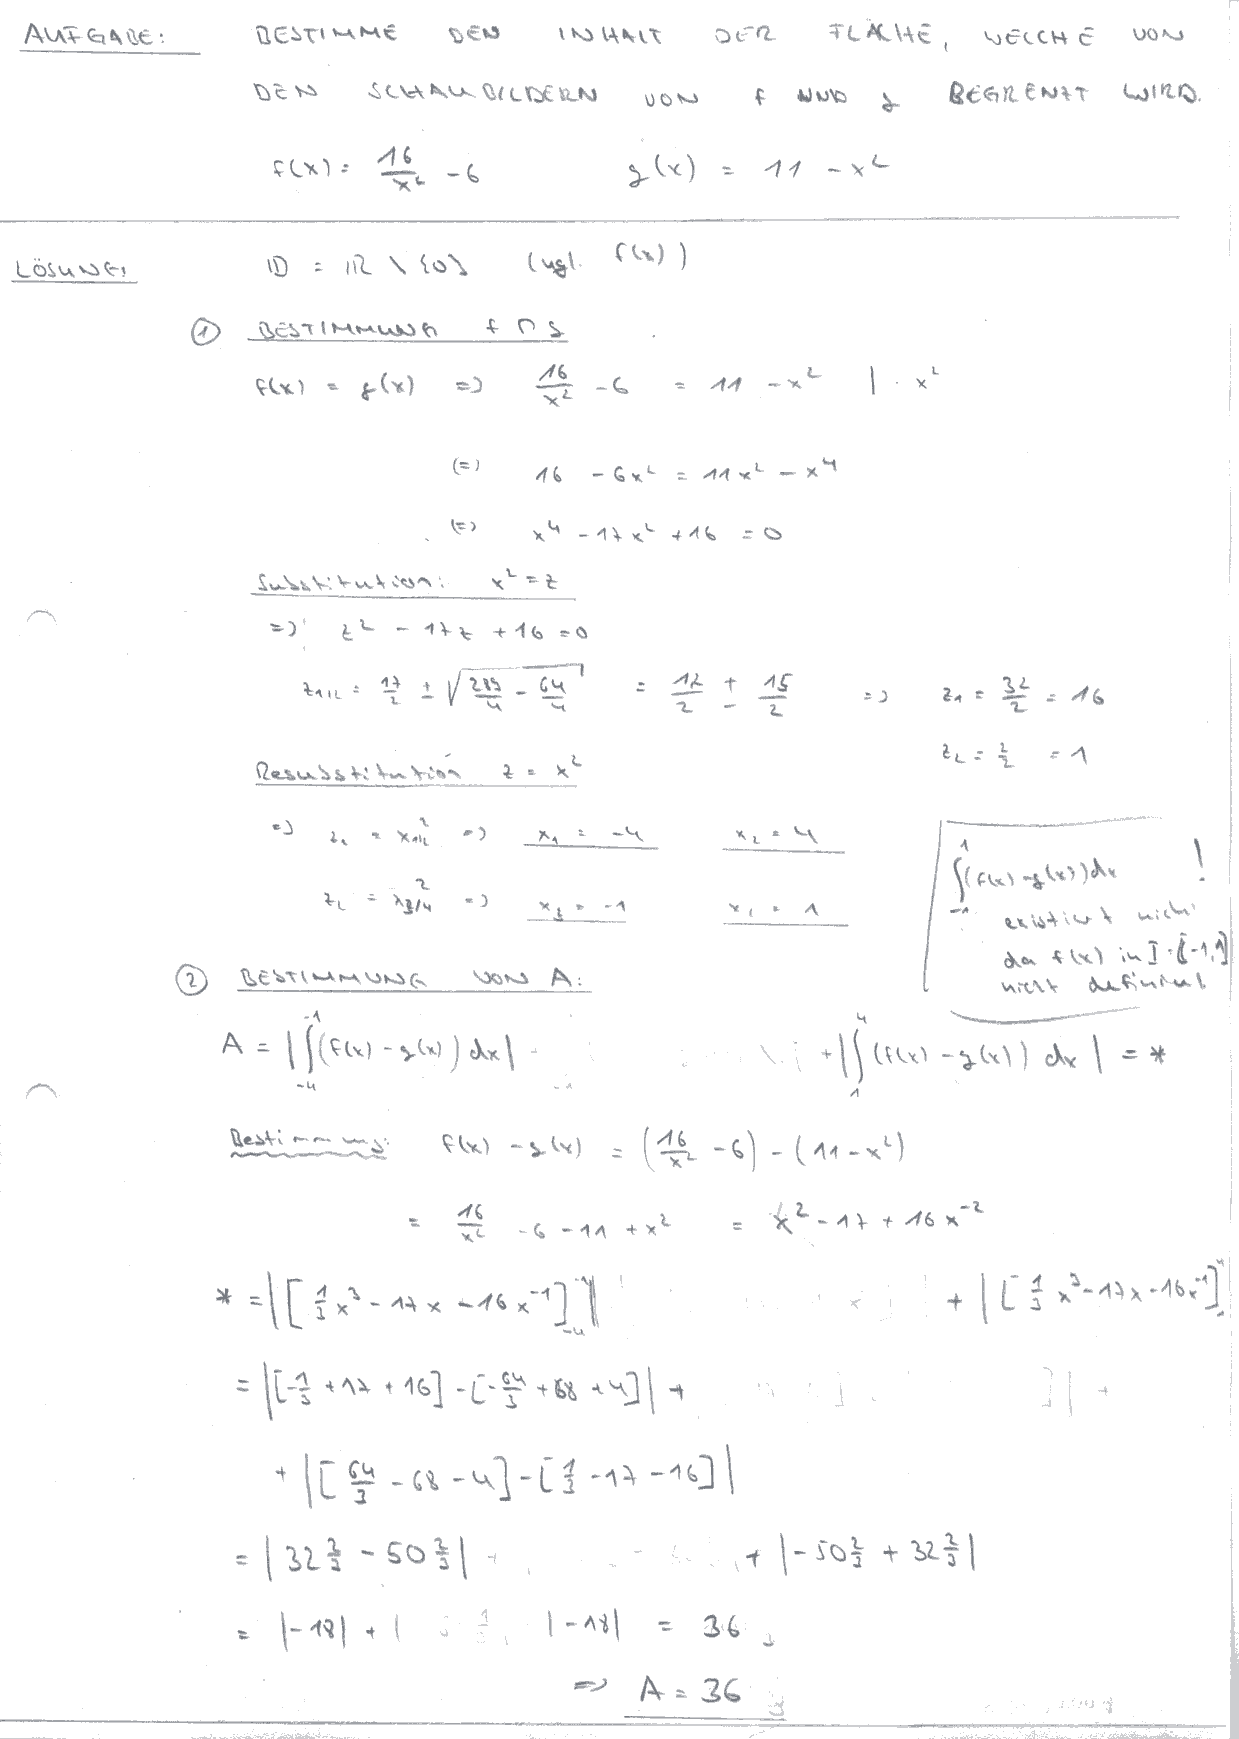 AUFGABE: BESTIMME DEN INHALT DER FLÄCHE, WELCHE VON
DEN SCHAUBILDERN VON f UND g BEGRENZT WIRD.
f(x) = 16/x² - 6 g(x) = 11 - x²
LÖSUNG: ID = IR \ {0} (vgl. f(x))
① BESTIMMUNG f ∩ g
f(x) = g(x) => 16/x² - 6 = 11 - x² | · x²
(=) 16 - 6x² = 11x² - x⁴
(=) x⁴ - 17x² + 16 = 0
Substitution: x² = z
=> z² - 17z + 16 = 0
z₁/₂ = 17/2 ± √(289/4 - 64/4) = 17/2 ± 15/2 => z₁ = 32/2 = 16
z₂ = 2/2 = 1
Resubstitution z = x²
=> z₁ = x₁/₂² => x₁ = -4 x₂ = 4
z₂ = x₃/₄² => x₃ = -1 x₄ = 1
∫₋₁¹ (f(x) - g(x)) dx !
existiert nicht
da f(x) in I = [-1,1]
nicht definiert
② BESTIMMUNG VON A:
A = | ∫₋₄⁻¹ (f(x) - g(x)) dx | + | ∫₁⁴ (f(x) - g(x)) dx | = *
Bestimmung: f(x) - g(x) = (16/x² - 6) - (11 - x²)
= 16/x² - 6 - 11 + x² = x² - 17 + 16x⁻²
* = |[1/3 x³ - 17x - 16x⁻¹]₋₄⁻¹| + |[1/3 x³ - 17x - 16x⁻¹]₁⁴
= |[-1/3 + 17 + 16] - [-64/3 + 68 + 4]| +
+ |[64/3 - 68 - 4] - [1/3 - 17 - 16]|
= |32 2/3 - 50 2/3| + |-50 2/3 + 32 2/3|
= |-18| + |-18| = 36
=> A = 36